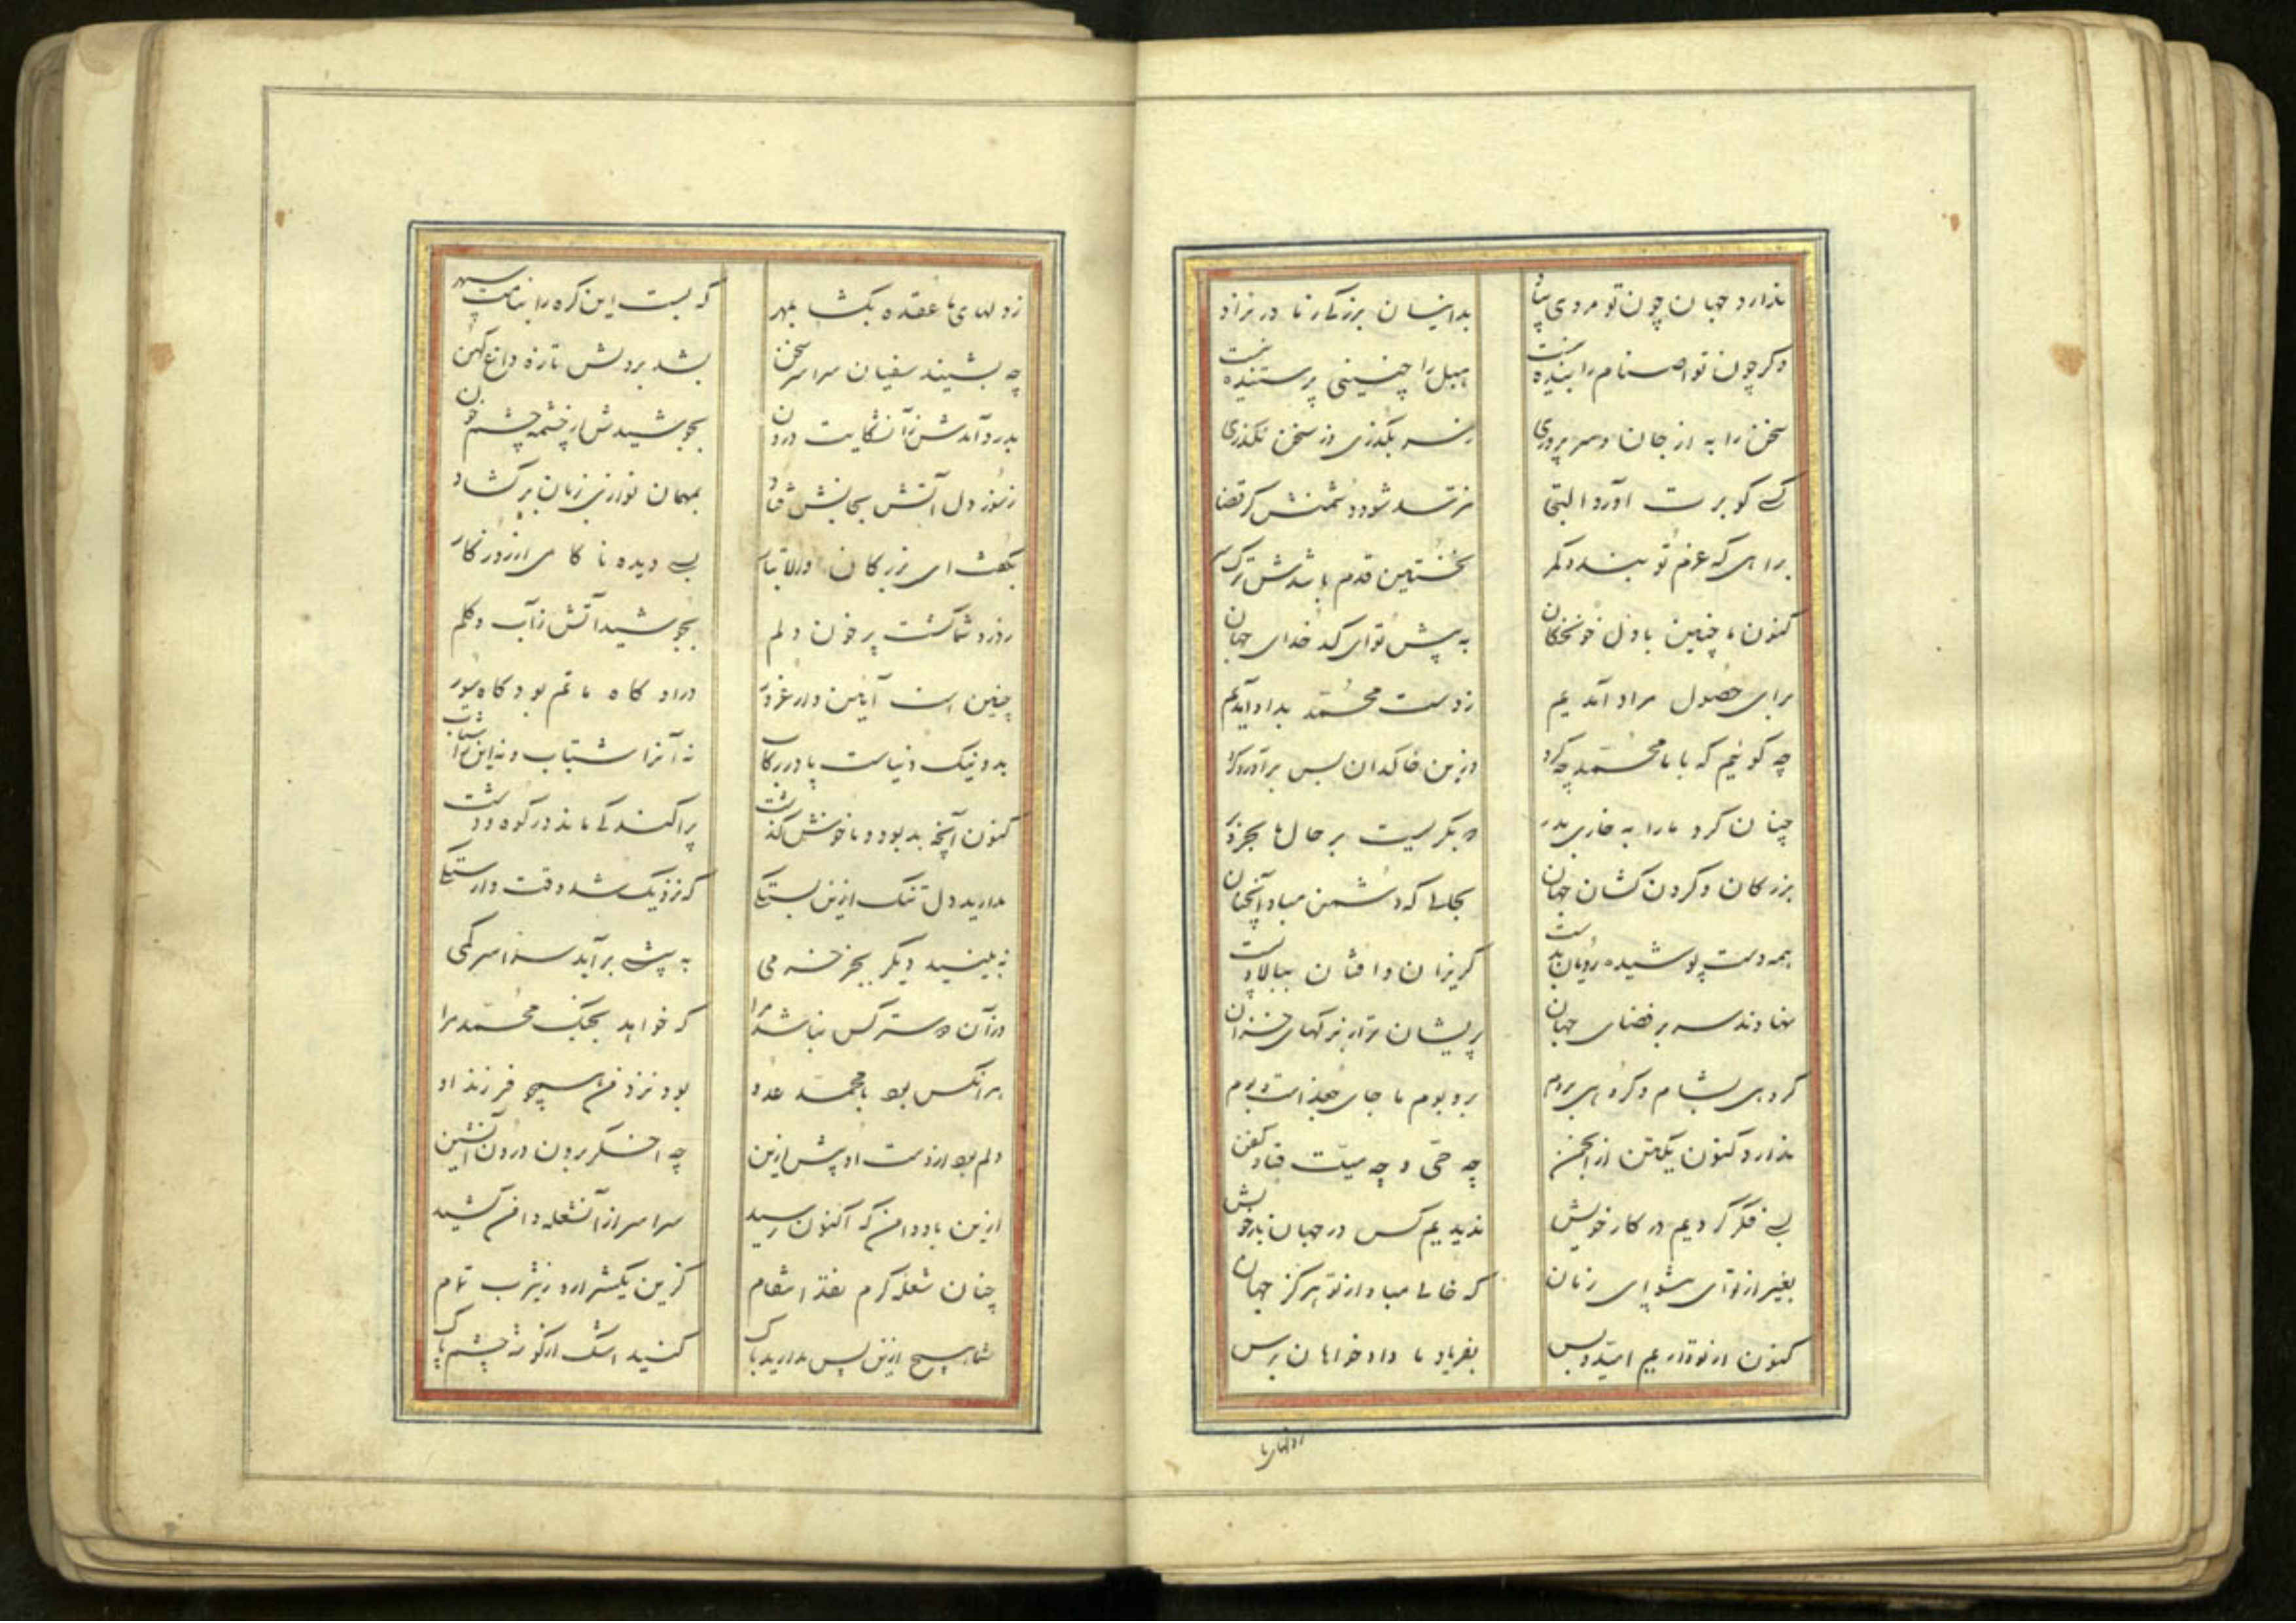 ندارد جهان چون تو مردی بیاد بدانسان بزرگ از نژاد
دگر چون تو اصنام را بنده نیست هبل را چنینی پرستنده نیست
سخن را به از جان و سر پروری ز سر بگذری وز سخن نگذری
کسی کو برت آورد التجی نترسد شود دشمنش گر قضا
براهی که عزم تو بندد کمر نخستین قدم باشدش ترک سر
کنون ما چنین با دل خونچکان به پیش تو ای کدخدای جهان
برای حصول مراد آمدیم ز دست محمد بداد آمدیم
چه گوئیم که با ما محمد چه کرد وزین خاکدان بس برآورد گرد
چنان کرد ما را به خاری بدر که بگریست بر حال ما بحر و بر
بزرگان و گردن کشان جهان بحالی که دشمن مباد آنچنان
همه دست پوشیده رویان بدست گریزان و افتان ببالا و پست
نهادند سر بر فضای جهان پریشان تر از برگهای خزان
گروهی بشام و گروهی بروم بر و بوم ما جای جغد است و بوم
ندارد کنون یکتن از انجمن چه حی و چه میت قبا و کفن
بسی فکر کردیم در کار خویش ندیدیم کس در جهان یار خویش
بغیر از تو ای پیشوای زمان که خالی مباد از تو هرگز جهان
کنون از تو داریم امید و بس بفریاد ما دادخواهان برس
ز دلهای ما
ز دلهای ما عقده بگشا بمهر که بست این گره را بنامت سپهر
چه بشنید سفیان سراسر سخن بشد بر دلش تازه داغ کهن
بدرد آمدش زآن شکایت درون بجوشیدش از چشمه چشم خون
ز سوز دل آتش بجانش فتاد بمهمان نوازی زبان برگشاد
بگفت ای بزرگان والا تبار بسی دیده ناکامی از روزگار
ز درد شما گشت پر خون دلم بجوشید آتش ز آب و گلم
چنین است آیین دار غرور در او گاه ماتم بود گاه سور
بد و نیک دنیاست پا در رکاب نه آنرا شتاب و نه این را شتاب
کنون آنچه بد بود و ناخوش گذشت پراکندگی ماند در کوه و دشت
مدارید دل تنگ ازین بستگی که نزدیک شد وقت وارستگی
نه بینید دیگر بجز خرمی به پیشی برآید سراسر کمی
در آن دسترس کس نباشد مرا که خواهد بجنگ محمد مرا
هر آنکس بود با محمد عدو بود نزد من همچو فرزند او
دلم بود از دست او پیش ازین چه اخگر برون و درون آتشین
ازین باد دامن که اکنون رسید سراسر از آن شعله دامن کشید
چنان شعله گرم نفذ انتقام کزین یکشرارد ز یثرب تمام
شما هیچ ازین پس مدارید باک کنید اشک از گوشه چشم پاک